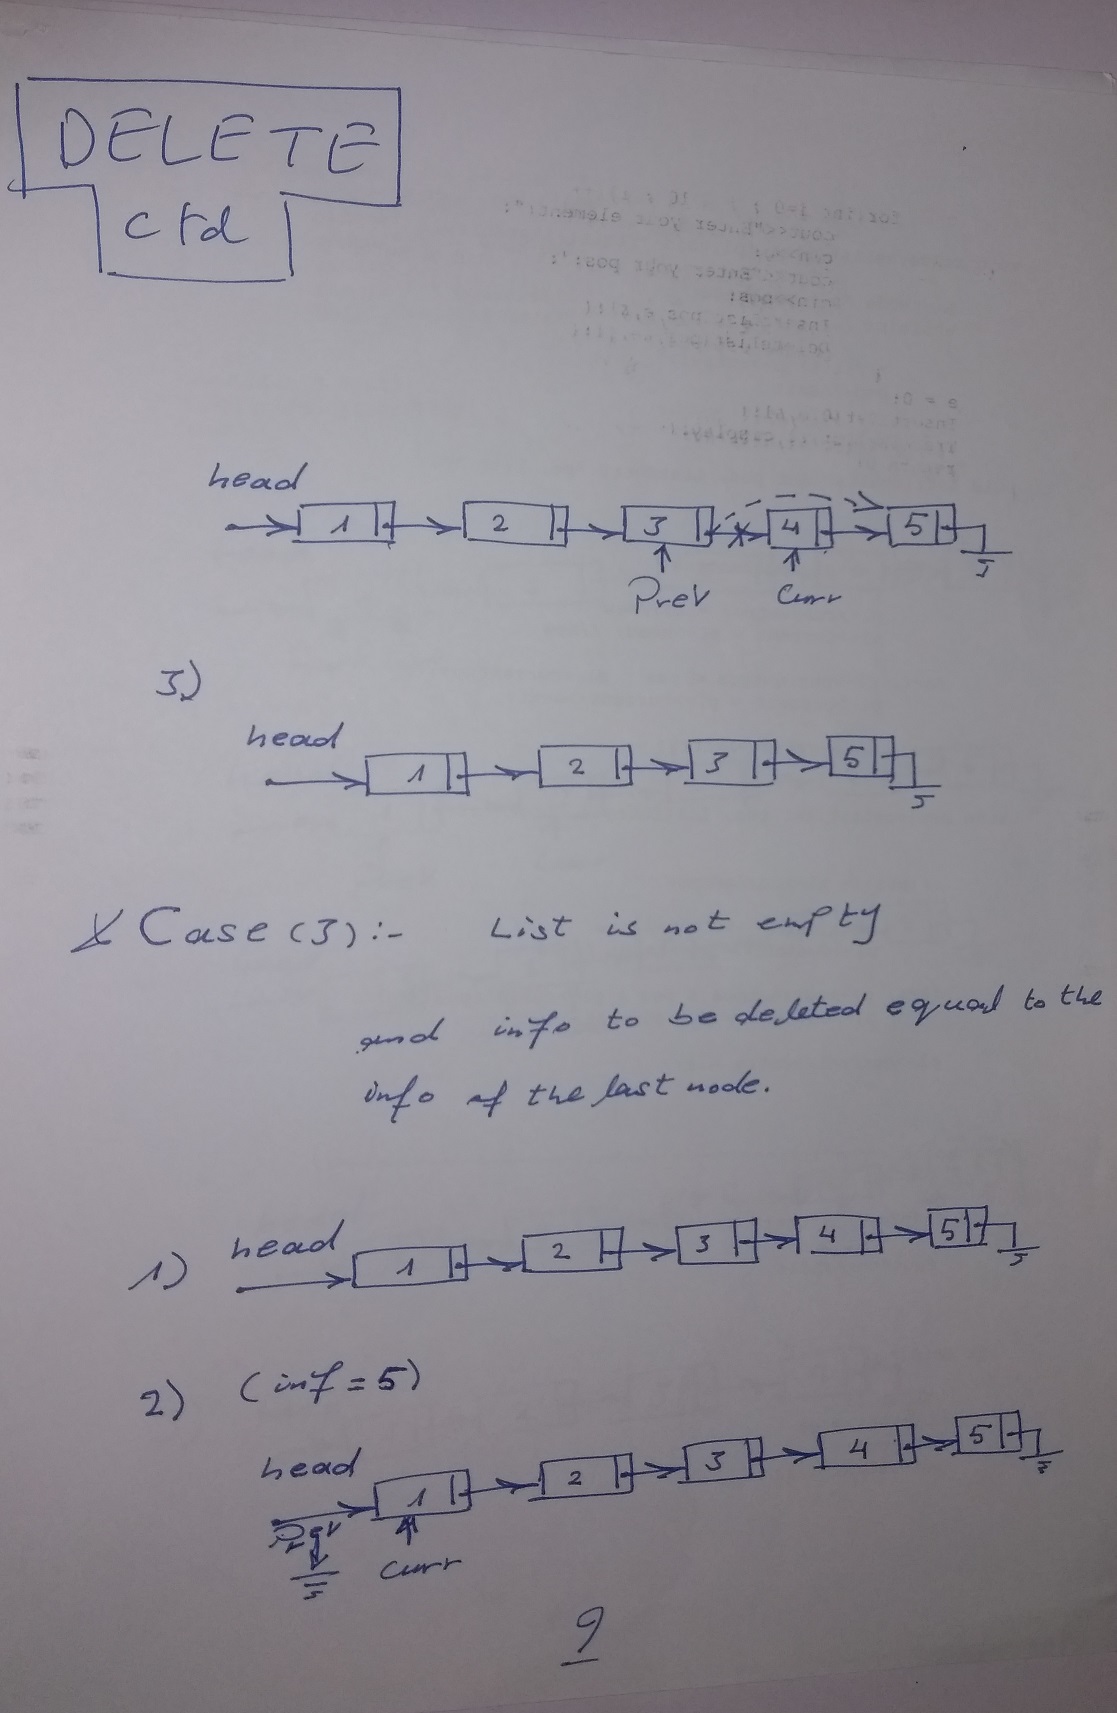 DELETE
ctd
head
1 2 3 4 5
Prev Curr
3)
head
1 2 3 5
Case (3):- List is not empty
and info to be deleted equal to the
info of the last node.
head
1) 1 2 3 4 5
2) (inf = 5)
head
1 2 3 4 5
Prev
Curr
9